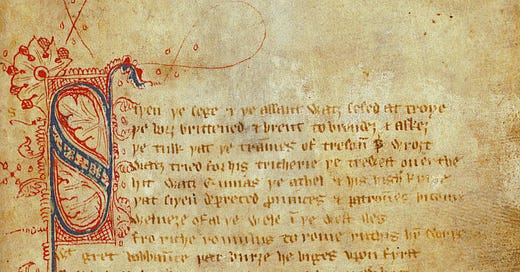 Siþen þe sege & þe assaut watz sesed at troye
þe borȝ brittened & brent to brondeȝ & askez
þe tulk þat þe trammes of tresoun þ̲ wroȝt
Watz tried for his tricherie þe trewest on erthe
Hit watz Ennias þe athel & his highe kynde
þat siþen depreced prouinces & patrounes bicome
Welneȝe of al þe wele in þe west iles
Fro riche romulus to rome ricchis hym
gret bobbaunce þat burȝe he biges vpon fyrst